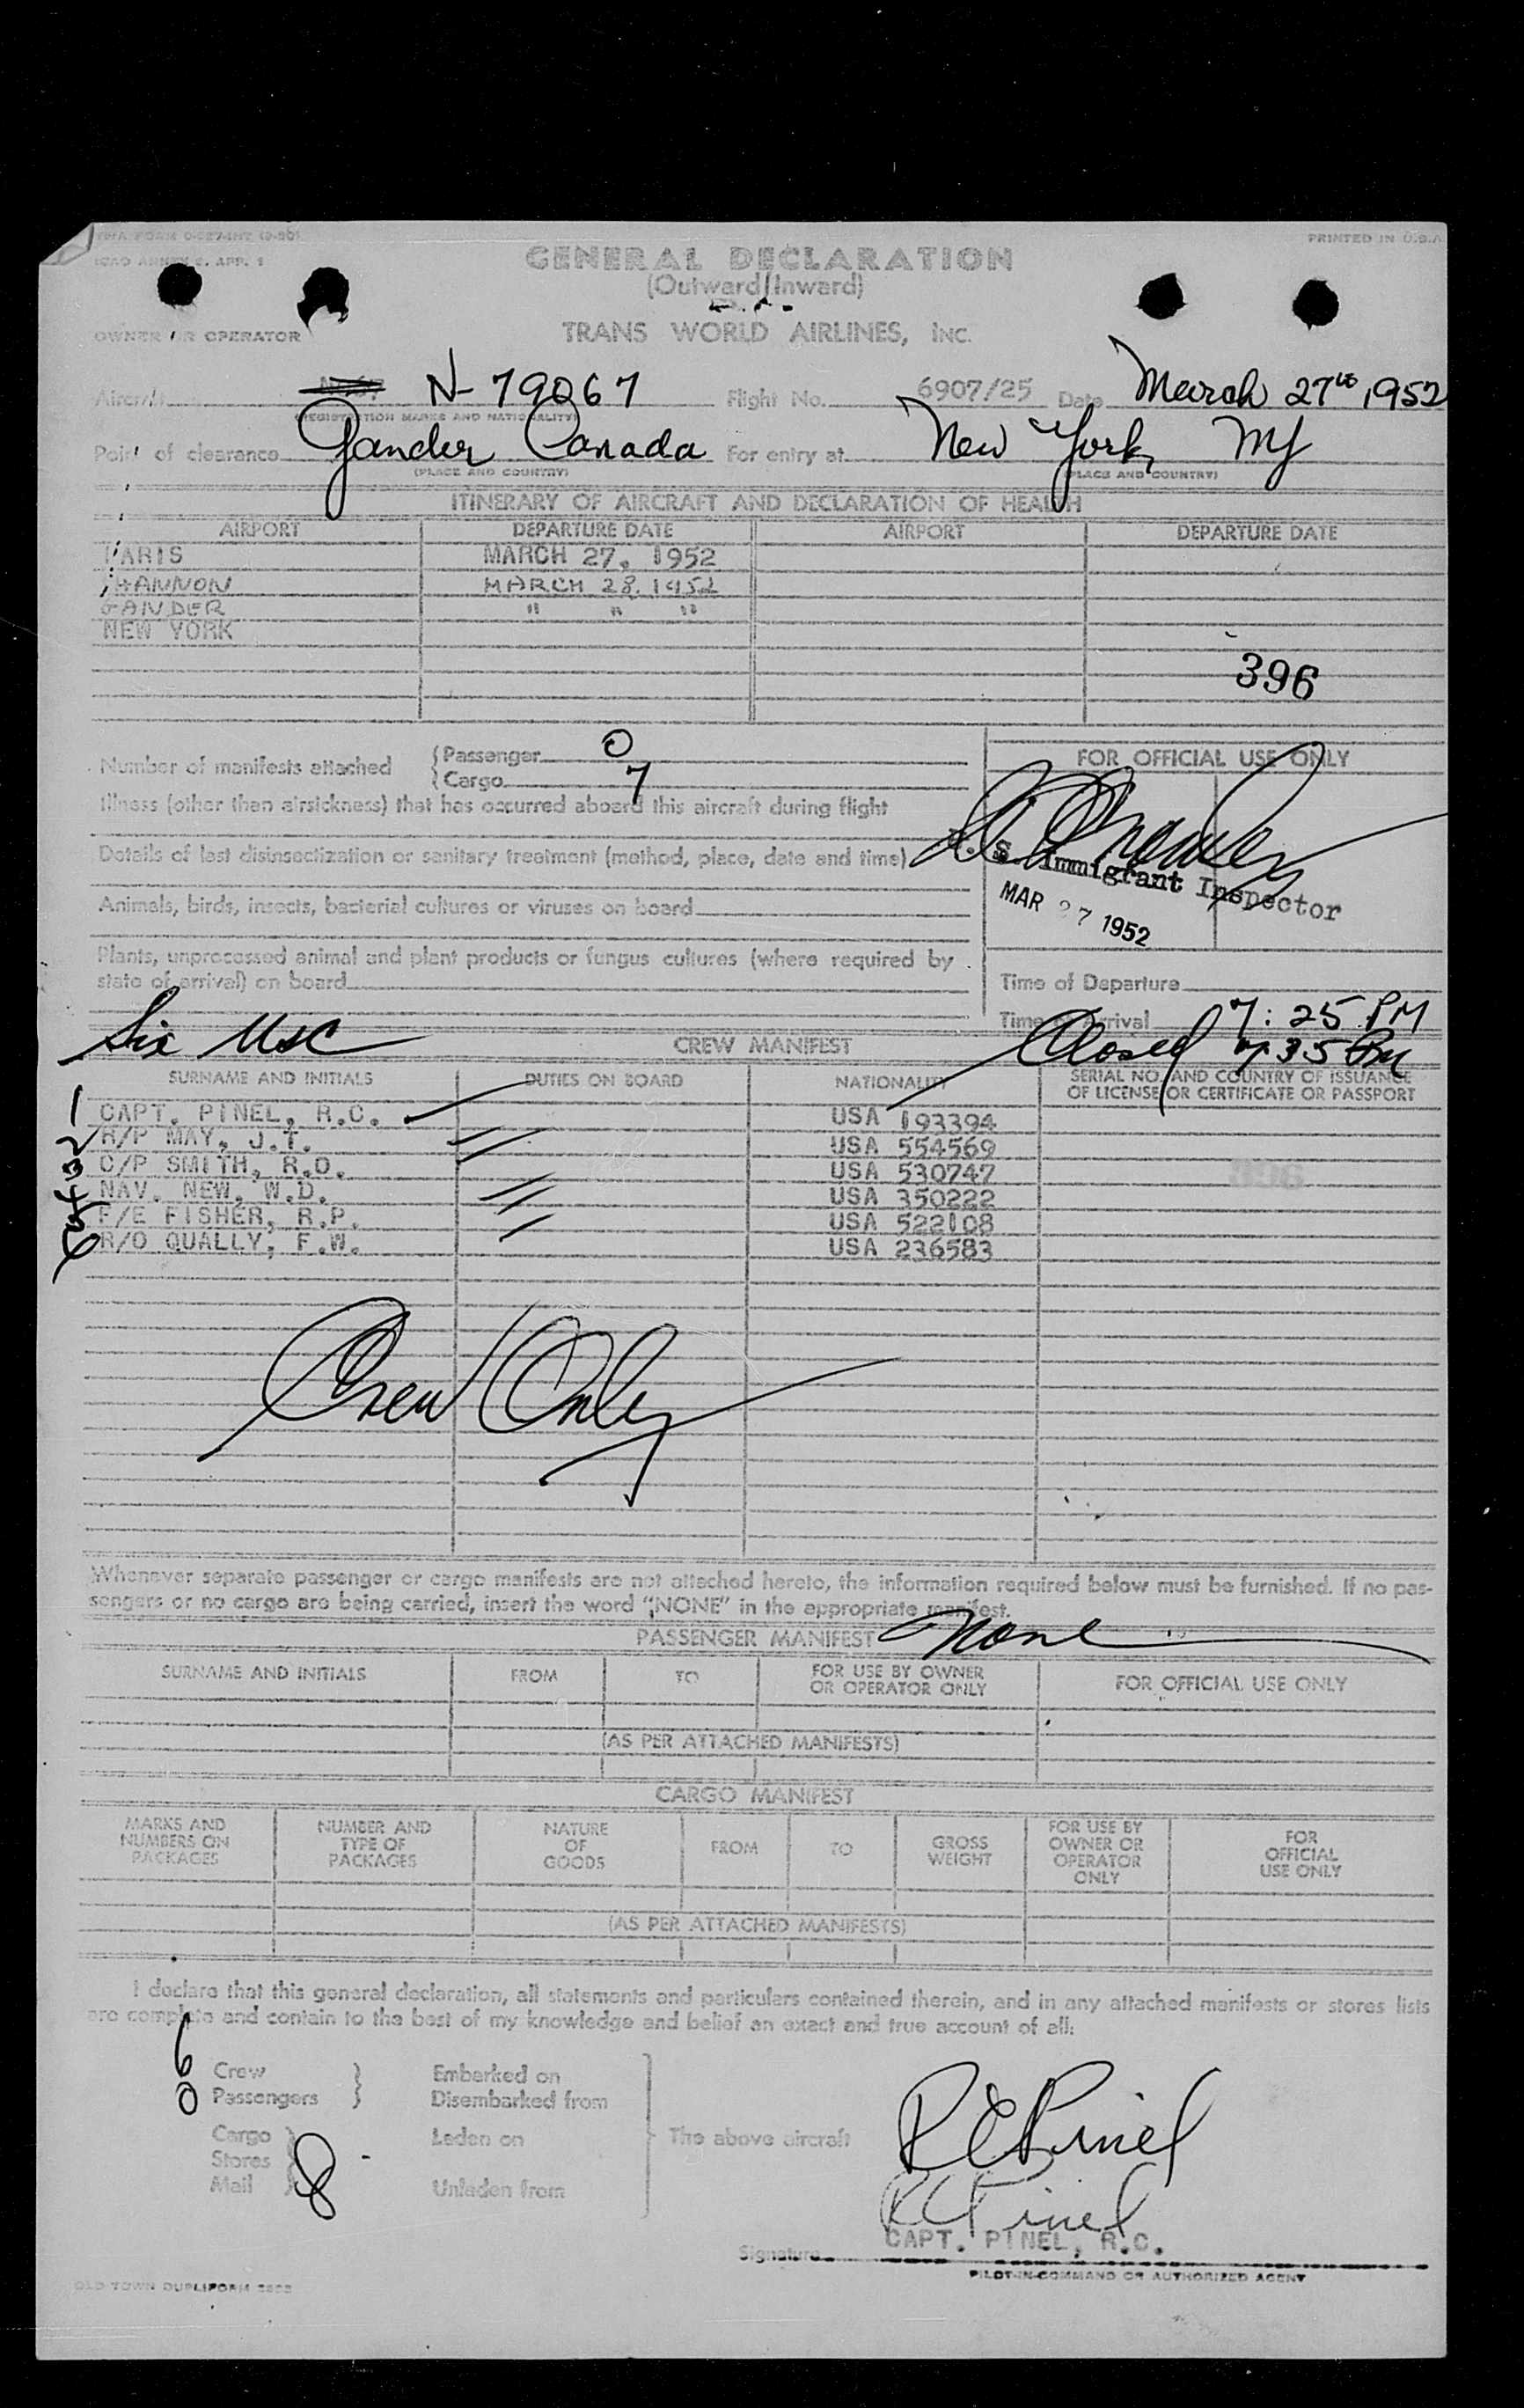 TWA FORM 0-327-INT (9-50)
PRINTED IN U.S.A.
ICAO ANNEX 9, APP. 1
GENERAL DECLARATION
(Outward/Inward)
OWNER OR OPERATOR TRANS WORLD AIRLINES, INC.
Aircraft N-79067 Flight No. 6907/25 Date March 27th, 1952
(REGISTRATION MARKS AND NATIONALITY)
Point of clearance Gander Canada For entry at New York, NY
(PLACE AND COUNTRY) (PLACE AND COUNTRY)
ITINERARY OF AIRCRAFT AND DECLARATION OF HEALTH
AIRPORT DEPARTURE DATE AIRPORT DEPARTURE DATE
PARIS MARCH 27, 1952
SHANNON MARCH 28, 1952
GANDER " " "
NEW YORK
396
Number of manifests attached { Passenger 0
} Cargo 7
FOR OFFICIAL USE ONLY
Illness (other than airsickness) that has occurred aboard this aircraft during flight
Details of last disinsectization or sanitary treatment (method, place, date and time)
U. S. Immigrant Inspector
MAR 27 1952
Animals, birds, insects, bacterial cultures or viruses on board
Plants, unprocessed animal and plant products or fungus cultures (where required by
state of arrival) on board
Time of Departure
Time of Arrival 7:25 PM
Six USC Closed 7:35 PM
CREW MANIFEST
SURNAME AND INITIALS DUTIES ON BOARD NATIONALITY SERIAL NO. AND COUNTRY OF ISSUANCE
OF LICENSE OR CERTIFICATE OR PASSPORT
1 CAPT. PINEL, R.C. USA 193394
2 R/P MAY, J.T. USA 554569
3 C/P SMITH, R.O. USA 530747
4 NAV. NEW, W.D. USA 350222
5 F/E FISHER, R.P. USA 522108
6 R/O QUALLY, F.W. USA 236583
396
Crew Only
Whenever separate passenger or cargo manifests are not attached hereto, the information required below must be furnished. If no pas-
sengers or no cargo are being carried, insert the word "NONE" in the appropriate manifest.
PASSENGER MANIFEST None
SURNAME AND INITIALS FROM TO FOR USE BY OWNER
OR OPERATOR ONLY FOR OFFICIAL USE ONLY
(AS PER ATTACHED MANIFESTS)
CARGO MANIFEST
MARKS AND
NUMBERS ON
PACKAGES NUMBER AND
TYPE OF
PACKAGES NATURE
OF
GOODS FROM TO GROSS
WEIGHT FOR USE BY
OWNER OR
OPERATOR
ONLY FOR
OFFICIAL
USE ONLY
(AS PER ATTACHED MANIFESTS)
I declare that this general declaration, all statements and particulars contained therein, and in any attached manifests or stores lists
are complete and contain to the best of my knowledge and belief an exact and true account of all:
6 Crew } Embarked on
0 Passengers } Disembarked from
Cargo } Laden on The above aircraft
Stores
Mail } Unladen from
R C Pinel
R C Pinel
CAPT. PINEL, R.C.
Signature
PILOT-IN-COMMAND OR AUTHORIZED AGENT
OLD TOWN DUPLIFORM